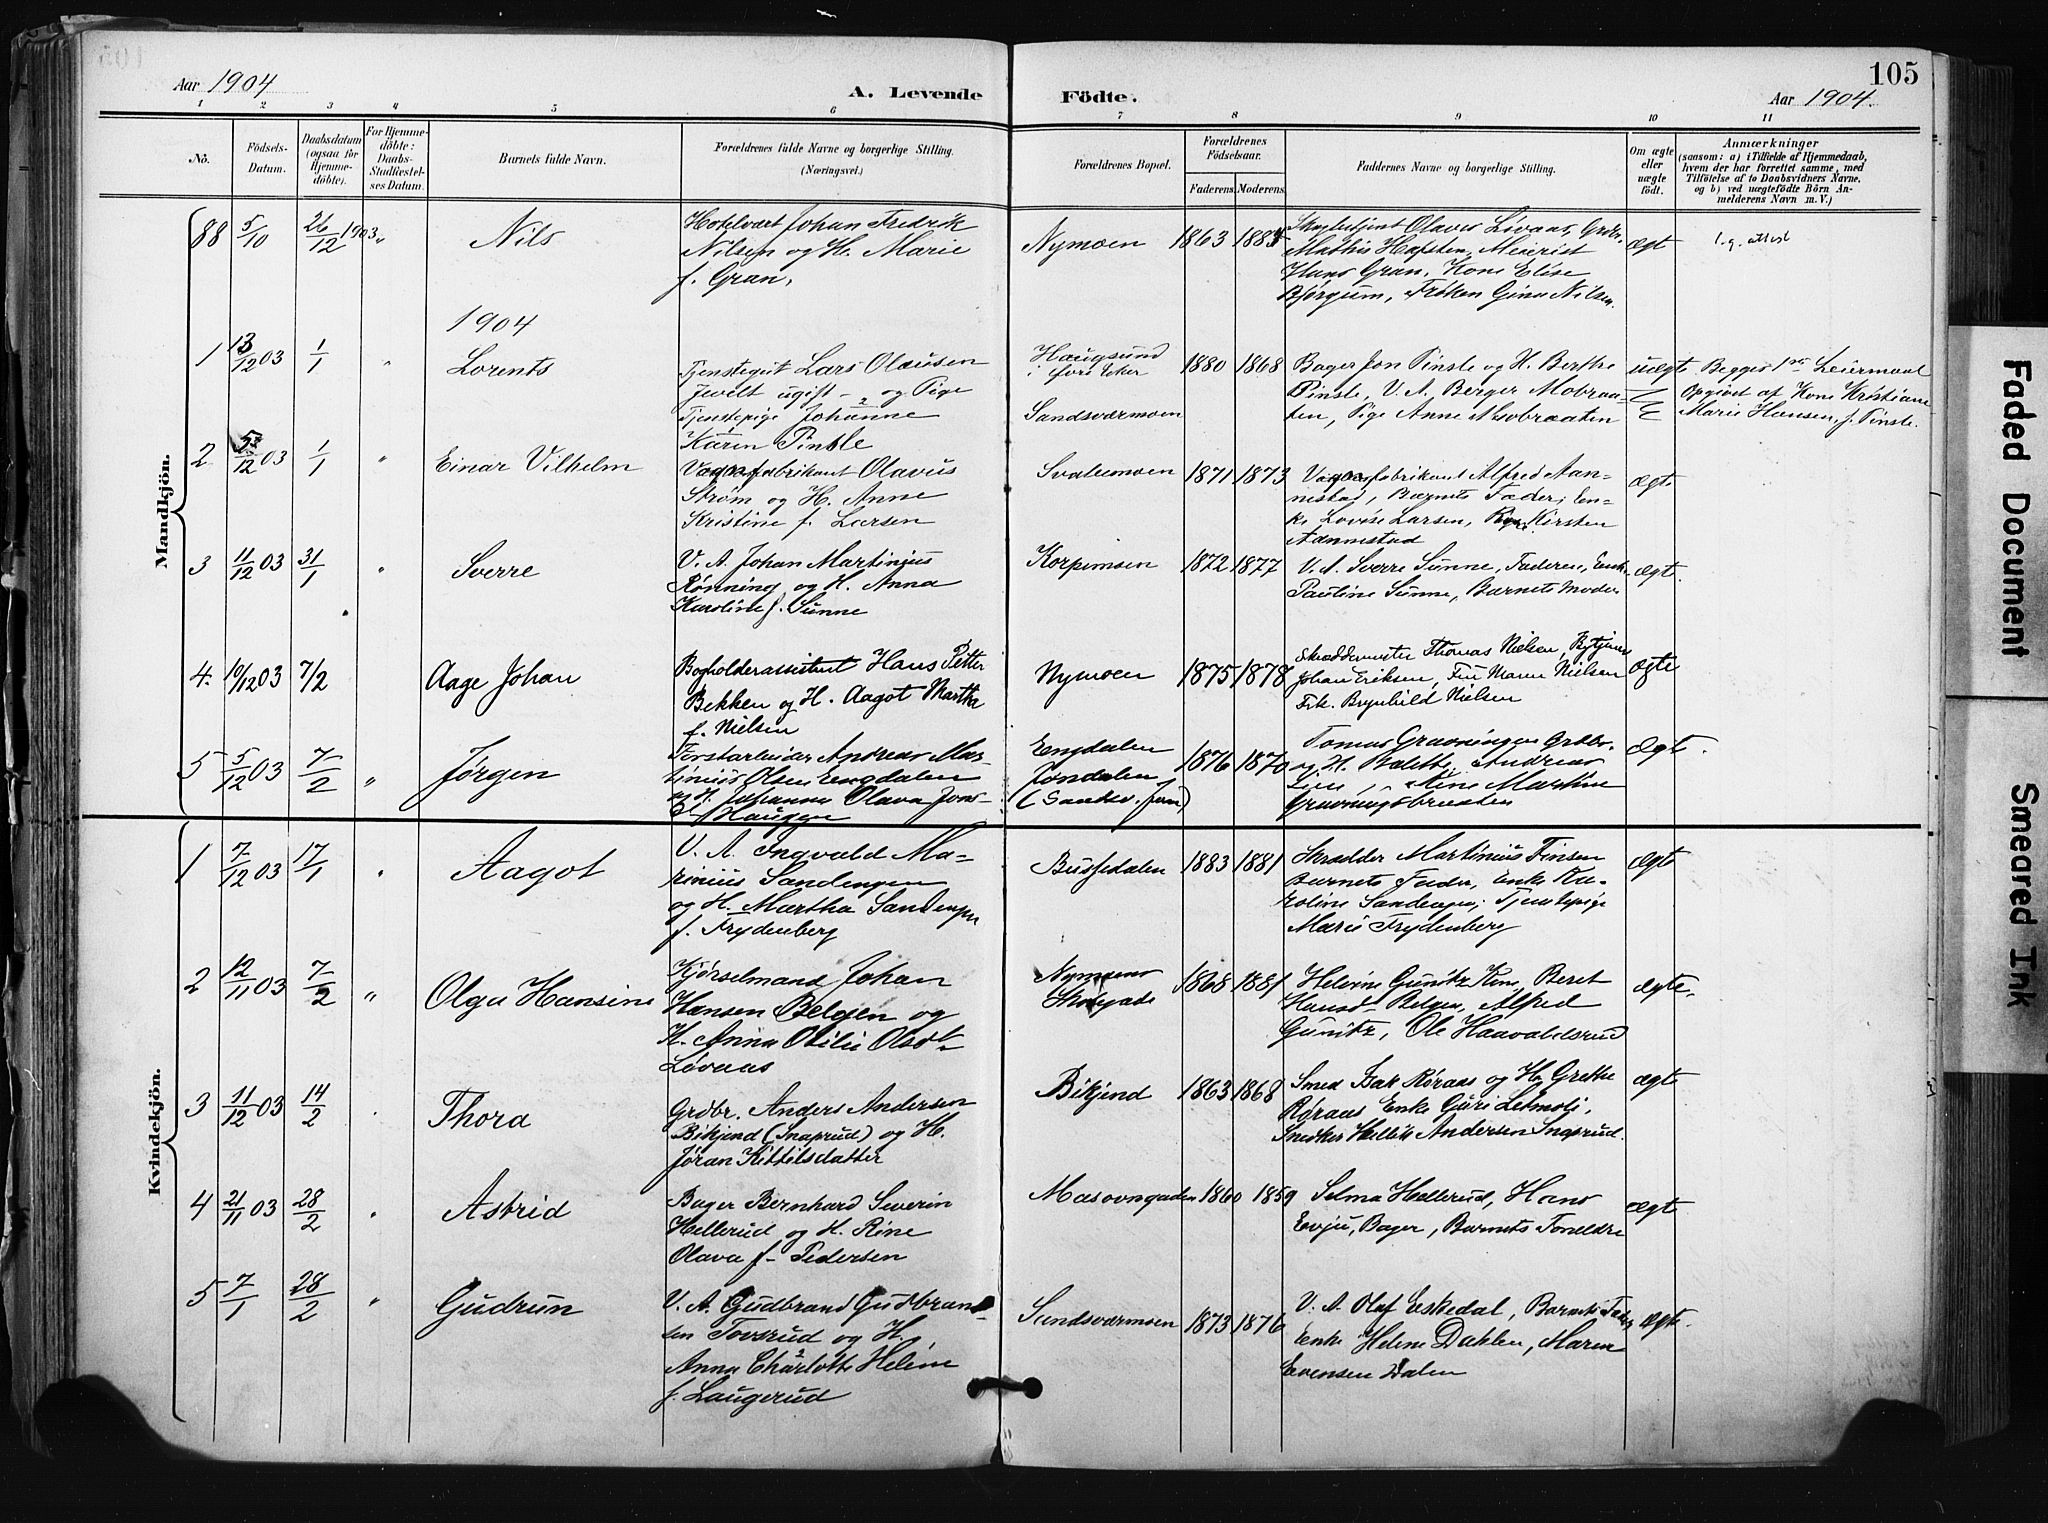 105
Aar 1904
A. Levende Födte.
Aar 1904.
1 2 3 4 5 6 7 8 9 10 11
No.
Födsels-Datum.
Daabsdatum (ogsaa for Hjemmedöbte).
For Hjemmedöbte: Daabs-Stadfæstelses Datum.
Barnets fulde Navn.
Forældrenes fulde Navne og borgerlige Stilling. (Næringsvei.)
Forældrenes Bopæl.
Forældrenes Födselsaar.
Faderens. Moderens.
Faddernes Navne og borgerlige Stilling.
Om ægte eller uægte födt.
Anmærkninger
(saasom: a) i Tilfælde af Hjemmedaab, hvem der har forrettet samme, med Tilföielse af to Daabsvidners Navne, og b) ved uægtefödte Börn Anmelderens Navn m. V.)
Mandkjön.
88 5/10 26/12 1903 " Nils
Hotelvært Johan Fredrik
Nilsen og H. Marie
f. Gran,
Nymoen 1863 1883
Olaves Lövaas, Grdbr.
Mathis Hafsten, Meierist
Hans Gran, Kone Elise
Bjørgum, Frøken Gina Nilsen.
ægt
l.g. attest
1904
1 13/12 03 1/1 " Lorents
Tjenstegut Lars Olausen
Jevelt ugift - og Pige
Tjenstepige Johanne
Karen Pinsle
Haugsund
i øvre Eker
Sandsværmoen
1880 1868
Bager Jon Pinsle og H. Berthe
Pinsle, V. A. Berger Mobraa-
ten, Pige Anne Mobraaten
uægte
Begges 1ste Leiermaal
Opgivet af Kone Kristiane
Marie Hansen, f. Pinsle.
2 5/12 03 1/1 " Einar Vilhelm
Vognfabrikant Olavus
Strøm og H. Anne
Kristine f. Larsen
Svalemoen 1871 1873
Vognfabrikant Alfred Aan-
nestad, Barnets Fader, En-
ke Lovise Larsen, Kirsten
Aannestad
ægte
3 11/12 03 31/1 " Sverre
V. A. Johan Martinius
Rønning og H. Anna
Karoline f. Sunne
Korpemoen 1872 1877
V. A. Sverre Sunne, Faderen, Enke
Pauline Sunne, Barnets Moder
ægt.
4. 10/12 03 7/2 Aage Johan
Bogholderassistent Hans Petter
Bekken og H. Aagot Martha
f. Nielsen
Nymoen 1875 1878
Skreddermester Thomas Nielsen,
Johan Eriksen, Fru Maren Nielsen
Frk. Brynhild Nielsen
ægte
5 5/12 03 7/2 " Jørgen
Forstarbeider Andreas Mar-
tinius Olsen Engdalen
og H. Johanna Olava Jons-
Haugen
Engdalen
Jondalen
(Sandsv. )
1876 1870
Tomas Gravningen Grdbr.
og H. Andreas
Lien, Martine
Gravningsbraaten
Ægt.
Kvindekjön.
1 7/12 03 17/1 " Aagot
V. A. Ingvald Ma-
rinius Sandengen
og H. Martha Sandengen
f. Frydenberg
Bussedalen 1883 1881
Skrædder Martinius Finsen
Barnets Fader, Enke Ka-
roline Sandengen, Tjenstepige
Marie Frydenberg
ægt
2 12/11 03 7/2 " Olga Hansine
Kjørselmand Johan
Hansen Belgen og
H. Anna Otilie Olsdt.
Løvaas
Nymoens
Skolegade
1868 1881
Helvine Gunitz Kone, Beret
Hansd. Belgen, Alfred
Gunitz, Ole Haavaldsrud
ægte.
3 11/12 03 14/2 Thora
Grdbr. Anders Andersen
Bikjend (Snaprud) og H.
Jøran Kittilsdatter
Bikjend 1863 1868
Smed Isak Røraas og H. Grethe
Røraas Enke Guri Letmoli,
Snedker Andersen Snaprud.
ægte
4 21/11 03 28/2 " Astrid
Bager Bernhard Severin
Hellerud og H. Rine
Olava f. Pedersen
Masovngaden 1860 1859
Selma Hellerud, Hans
Evju, Bager, Barnets Foreldre
ægt.
5 7/1 28/2 " Gudrun
V. A. Gudbrand Gudbrand-
sen Tovsrud og H.
Anna Charlotte Helene
f. Laugerud
Sandsværmoen 1873 1876
V. A. Olaf Eskedal, Barnets Fader
Enke Helene Dahlen, Maren
Evensen Dalen
ægte.
Faded Document
Smeared Ink